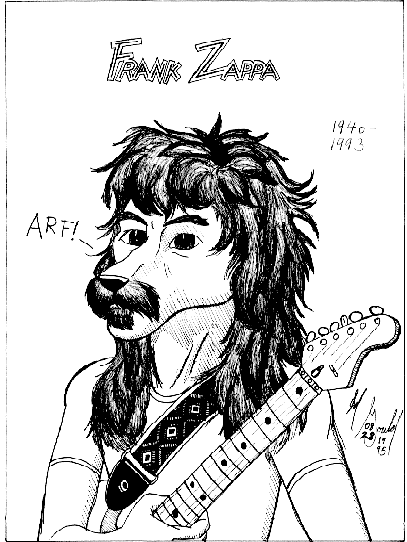 FRANK ZAPPA
1940-
1993
ARF!
08
28 19
95